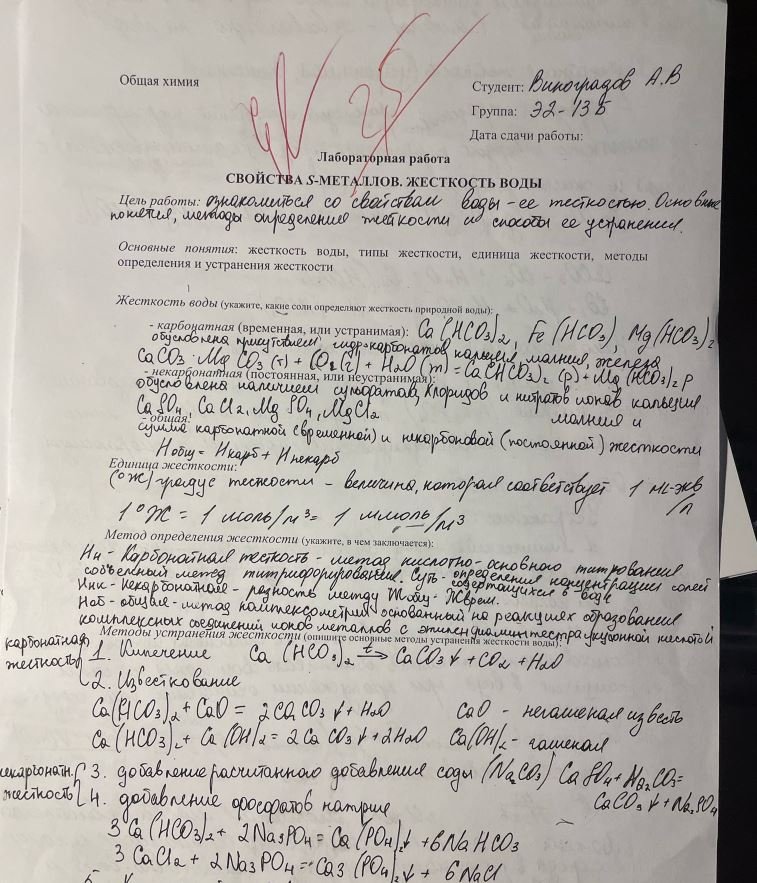 25
Общая химия
Студент: Виноградов А.В
Группа: Э2-13Б
Дата сдачи работы:
Лабораторная работа
СВОЙСТВА S-МЕТАЛЛОВ. ЖЕСТКОСТЬ ВОДЫ
Цель работы: ознакомиться со свойствам воды - ее жесткостью. Основные
понятия, методы определения жесткости и способы ее устранения.
Основные понятия: жесткость воды, типы жесткости, единица жесткости, методы
определения и устранения жесткости
Жесткость воды (укажите, какие соли определяют жесткость природной воды):
- карбонатная (временная, или устранимая): Ca(HCO3)2, Fe(HCO3), Mg(HCO3)2
обусловлена присутствием гидрокарбонатов кальция, магния, железа
CaCO3·MgCO3(т) + CO2(г) + H2O(m) = Ca(HCO3)2(р) + Mg(HCO3)2 р
- некарбонатная (постоянная, или неустранимая):
обусловлена наличием сульфатов, хлоридов и нитратов ионов кальция
CaSO4, CaCl2, MgSO4, MgCl2 магния и
- общая:
сумма карбонатной (временной) и некарбоновой (постоянной) жесткости
Hобщ = Hкарб + Hнекарб
Единица жесткости:
(°Ж) градус жесткости - величина, которая соответствует 1 мг-экв/л
1°Ж = 1 моль/м³ = 1 ммоль/м³
Метод определения жесткости (укажите, в чем заключается):
Hк - Карбонатная жесткость - метод кислотно-основного титрования
метод Суть - определения концентрации солей
содержащихся в воде
Hнк - Некарбонатная - разность между Жобщ - Жврем.
Hоб - общая - метод комплексометрии основанный на реакциях образования
комплексных соединений ионов металлов с кислотой
Методы устранения жесткости (опишите основные методы устранения жесткости воды):
карбонатная
жесткость
1. Кипячение Ca(HCO3)2 t→ CaCO3↓ + CO2 + H2O
2. Известкование
Ca(HCO3)2 + CaO = 2CaCO3↓ + H2O CaO - негашеная известь
Ca(HCO3)2 + Ca(OH)2 = 2CaCO3↓ + 2H2O Ca(OH)2 - гашеная
некарбонатн.
жесткость
3. добавление расчитанного добавления соды (Na2CO3) CaSO4 + Na2CO3 =
CaCO3↓ + Na2SO4
4. добавление фосфатов натрия
3Ca(HCO3)2 + 2Na3PO4 = Ca(PO4)2↓ + 6NaHCO3
3CaCl2 + 2Na3PO4 = Ca3(PO4)2↓ + 6NaCl